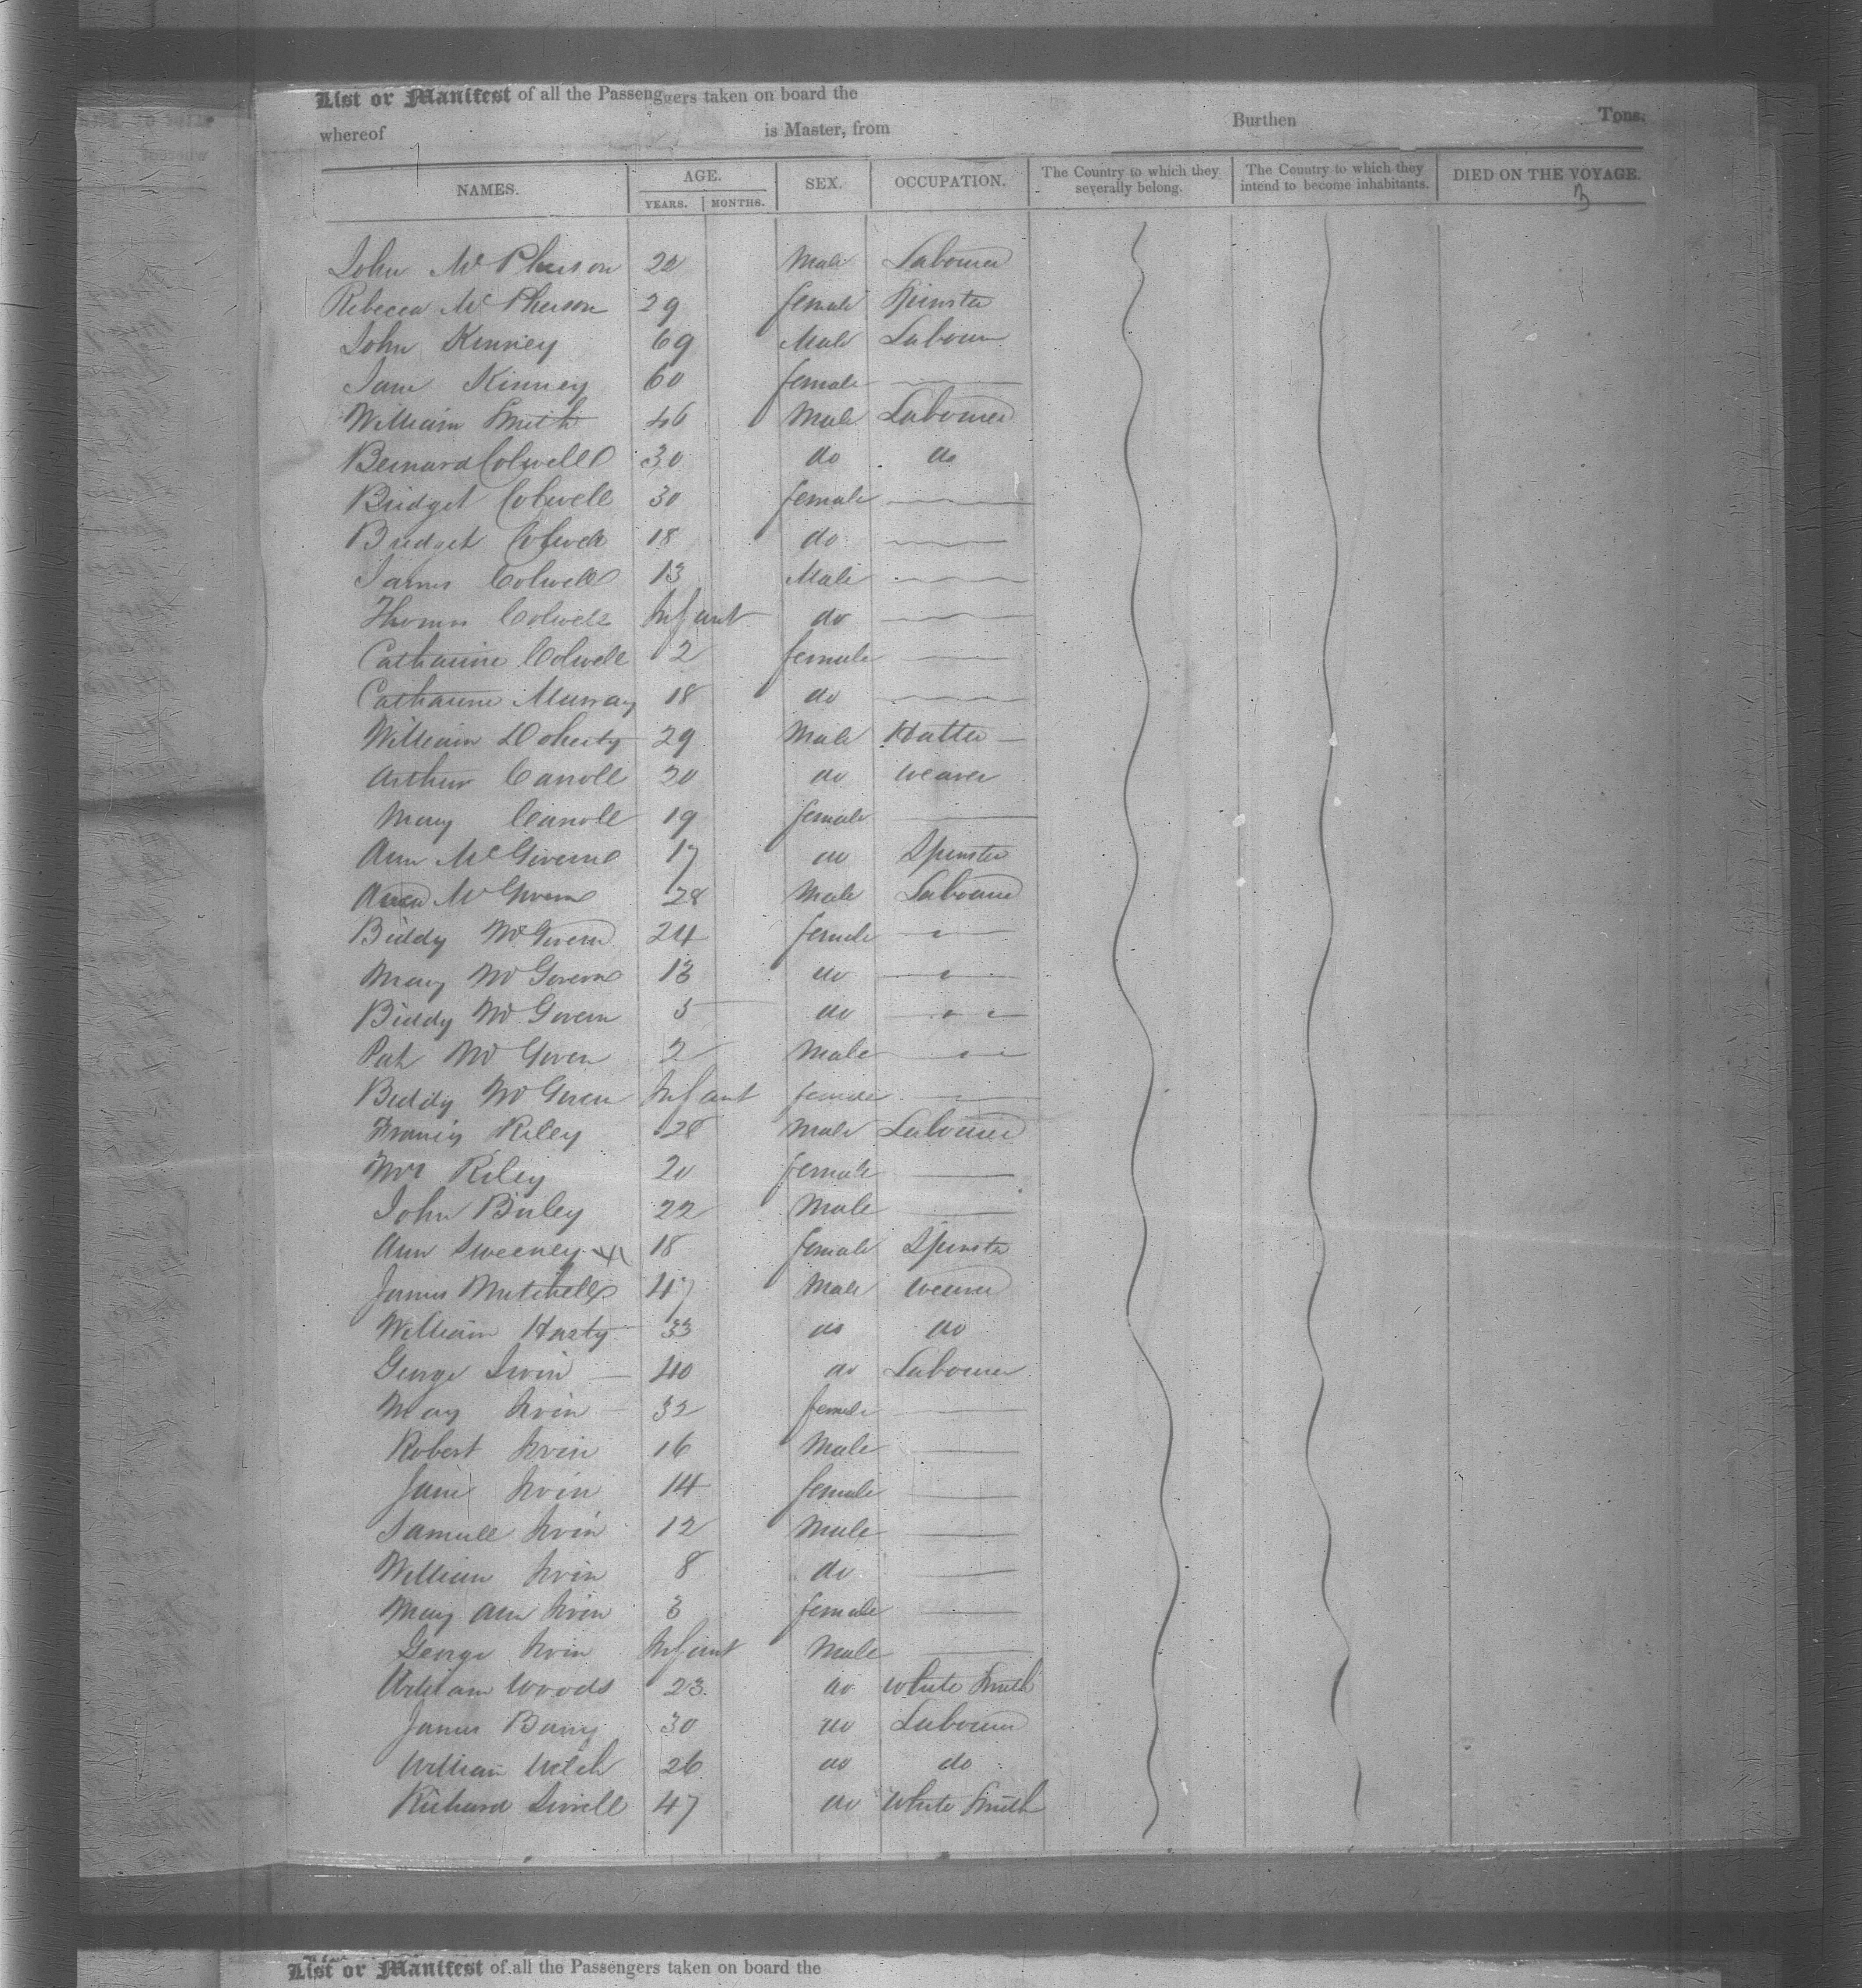 List or Manifest of all the Passengers taken on board the
whereof is Master, from Burthen Tons.
NAMES. AGE. SEX. OCCUPATION. The Country to which they severally belong. The Country to which they intend to become inhabitants. DIED ON THE VOYAGE.
YEARS. MONTHS.
3
John McPherson 22 Male Labourer
Rebecca McPherson 29 female Spinster
John Kinney 69 Male Labourer
Jane Kinney 60 female
William Smith 46 Male Labourer
Bernard Colwell 30 do do
Bridget Colwell 30 female
Bridget Colwell 18 do
James Colwell 13 Male
Thomas Colwell Infant do
Catharine Colwell 2 female
Catharine Murray 18 do
William Doherty 29 Male Hatter
Arthur Carroll 20 do Weaver
Mary Carroll 19 female
Ann McGovern 17 do Spinster
McGovern 28 Male Labourer
Biddy McGovern 24 female
Mary McGovern 13 do
Biddy McGovern 5 do
Pat McGoven 2 Male
Biddy McGoven Infant female
Francis Riley 28 Male Labourer
Mrs Riley 20 female
John Birley 22 Male
Ann Sweeney 18 female Spinster
James Mitchell 47 Male Weaver
William Harty 33 do do
George Irvin 40 do Labourer
Mary Irvin 32 female
Robert Irvin 16 Male
Jane Irvin 14 female
Samuell Irvin 12 Male
William Irvin 8 do
Mary Ann Irvin 3 female
George Irvin Infant Male
William Woods 23 do White Smith
James Barry 30 do Labourer
William Welch 26 do do
Richard 47 do White Smith
List or Manifest of all the Passengers taken on board the